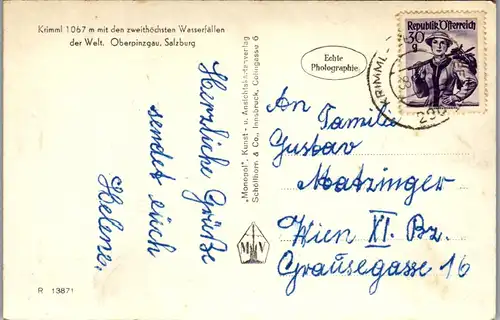 Krimml 1067 m mit den zweithöchsten Wasserfällen
der Welt. Oberpinzgau, Salzburg
Herzliche Grüße
sendet euch
Helene.
R 13871
„Monopol", Kunst- u. Ansichtskartenverlag
Schöllhorn & Co., Innsbruck, Colingasse 6
M V
Echte
Photographie
Republik Österreich
30
g
KRIMML
An Familie
Gustav
Matzinger
Wien XI. Bz.
Grausegasse 16